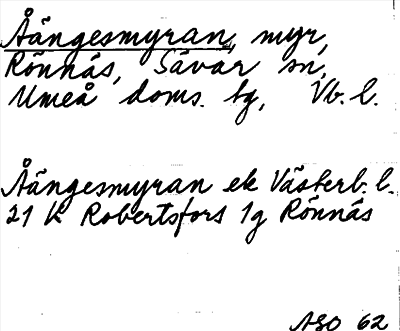 Åängesmyran, myr,
Rönnäs, Sävar sn,
Umeå doms. tg, Vb. l.
Åängesmyran ek Västerb. l.
21 K Robertsfors 1g Rönnäs
ASO 62